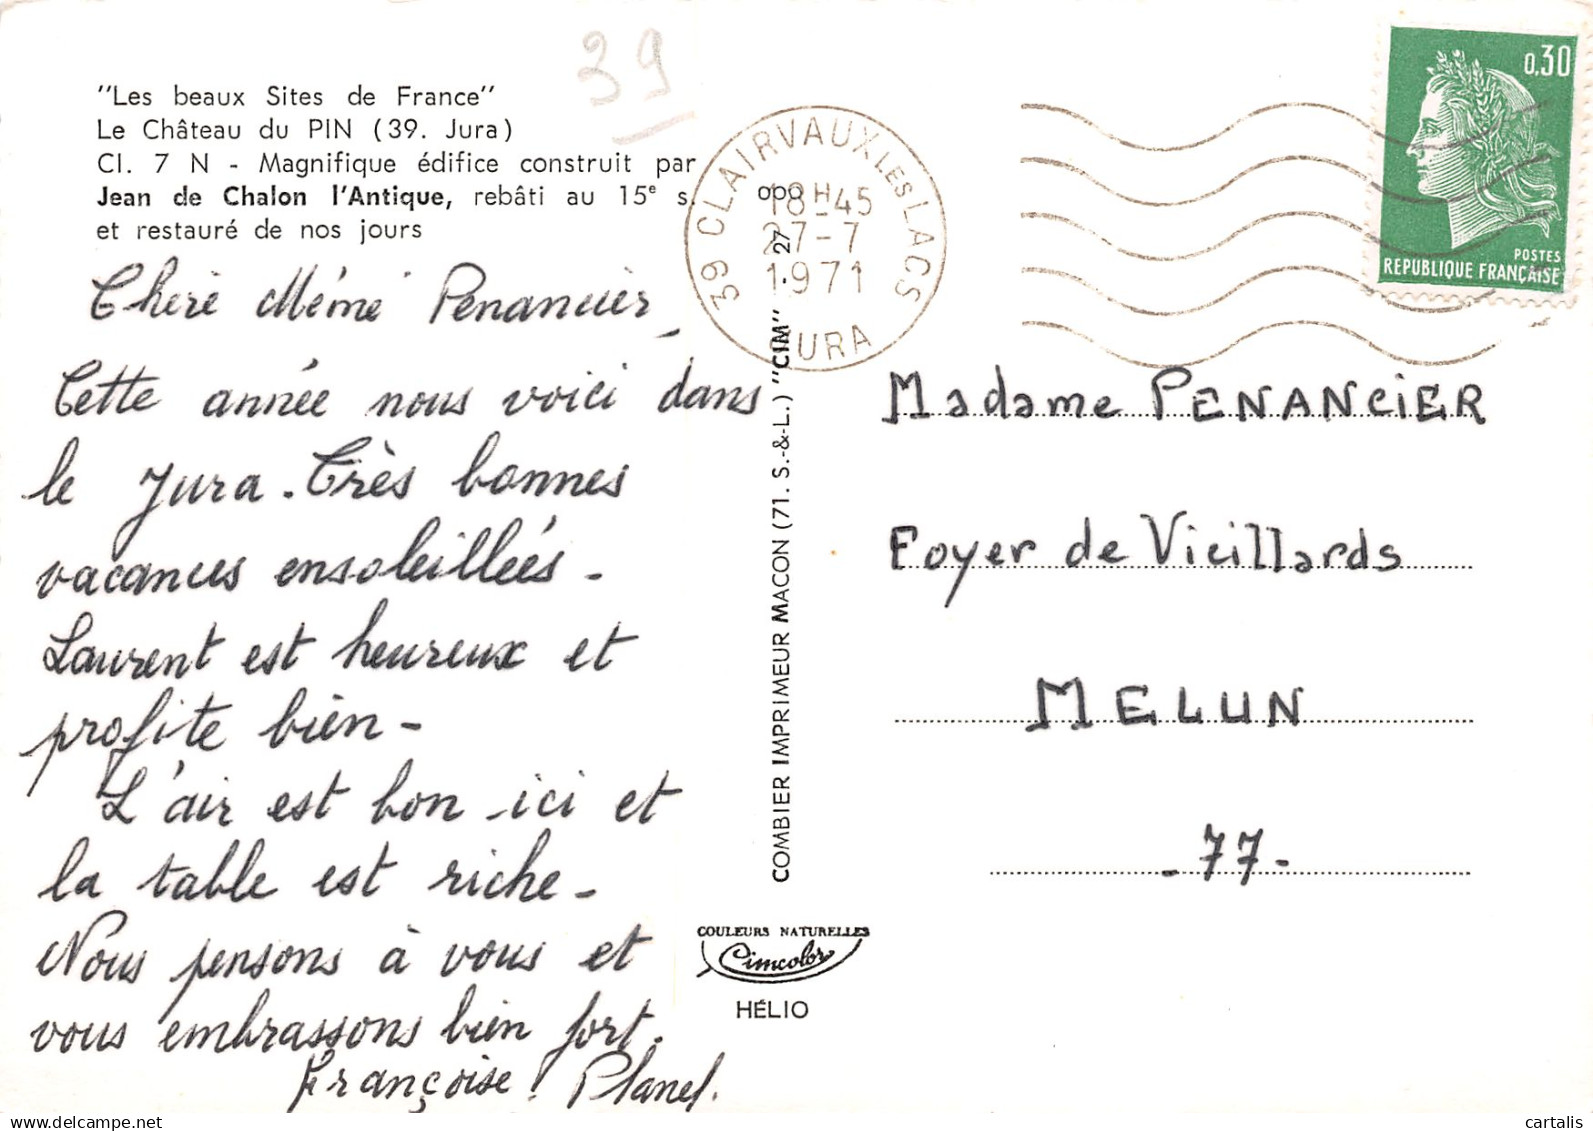 39
"Les beaux Sites de France"
Le Château du PIN (39. Jura)
Cl. 7 N - Magnifique édifice construit par
Jean de Chalon l'Antique, rebâti au 15e s.
et restauré de nos jours
Chère Mémé Penancier,
Cette année nous voici dans
le Jura. Très bonnes
vacances ensoleillées -
Laurent est heureux et
profite bien -
L'air est bon ici et
la table est riche -
Nous pensons à vous et
vous embrassons bien fort.
Françoise
39 CLAIRVAUX LES LACS
18H45
27-7
1971
JURA
0,30
POSTES
REPUBLIQUE FRANÇAISE
COMBIER IMPRIMEUR MACON (71. S.-&-L.) "CIM"
Madame PENANCIER
Foyer de Vieillards
MELUN
- 77 -
COULEURS NATURELLES
Cimcolor
HÉLIO
www.delcampe.net
cartalis